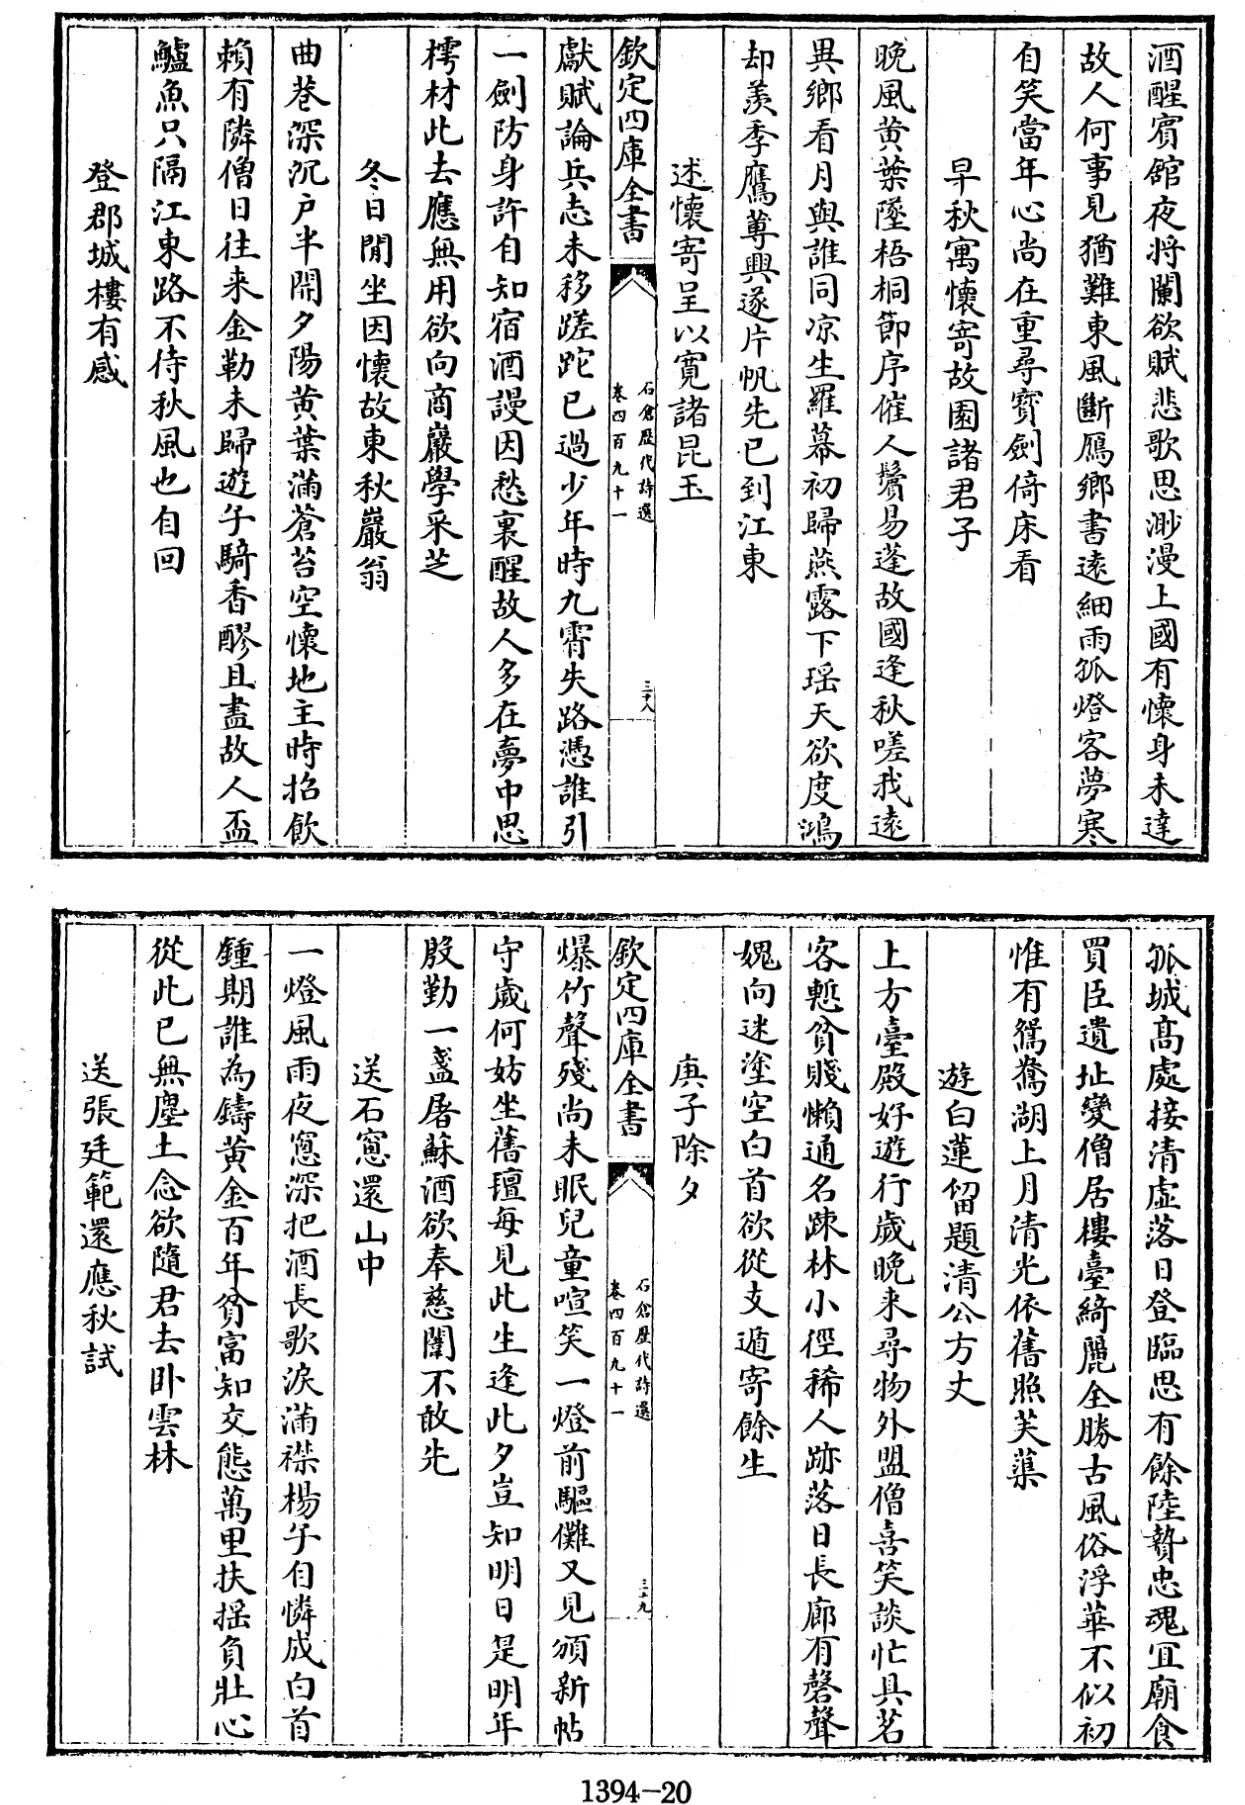 酒醒賓館夜將闌欲賦悲歌思渺漫上國有懷身未達
故人何事見猶難東風斷鴈鄉書遠細雨孤燈客夢寒
自笑當年心尚在重尋寳劍倚床看
早秋寓懷寄故園諸君子
晚風黄葉墜梧桐節序催人鬢易蓬故國逢秋嗟我遠
異鄉看月與誰同凉生羅幕初歸燕露下瑶天欲度鴻
却羨季鷹蓴興遂片帆先已到江東
述懷寄呈以寛諸昆玉
欽定四庫全書
石倉歷代詩選
卷四百九十一
三十八
獻賦論兵志未移蹉跎已過少年時九霄失路憑誰引
一劍防身許自知宿酒謾因愁裏醒故人多在夢中思
樗材此去應無用欲向商巖學采芝
冬日閒坐因懷故東秋巖翁
曲巷深沉户半開夕陽黄葉滿蒼苔空懷地主時招飲
賴有隣僧日往来金勒未歸遊子騎香醪且盡故人盃
鱸魚只隔江東路不待秋風也自回
登郡城樓有感
孤城髙處接清虚落日登臨思有餘陸贄忠魂宜廟食
買臣遺址變僧居樓臺綺麗全勝古風俗浮華不似初
惟有鴛鴦湖上月清光依舊照芙蕖
遊白蓮留題清公方丈
上方臺殿好遊行歲晚来尋物外盟僧喜笑談忙具茗
客慙貧賤懶通名踈林小徑稀人跡落日長廊有磬聲
媿向迷塗空白首欲從支遁寄餘生
庚子除夕
欽定四庫全書
石倉歷代詩選
卷四百九十一
三十九
爆竹聲殘尚未眠兒童喧笑一燈前驅儺又見頒新帖
守歲何妨坐舊氊每見此生逢此夕豈知明日是明年
殷勤一盞屠蘇酒欲奉慈闈不敢先
送石窻還山中
一燈風雨夜窻深把酒長歌淚滿襟楊子自憐成白首
鍾期誰為鑄黄金百年貧富知交態萬里扶摇負壯心
從此已無塵土念欲隨君去卧雲林
送張廷範還應秋試
1394-20